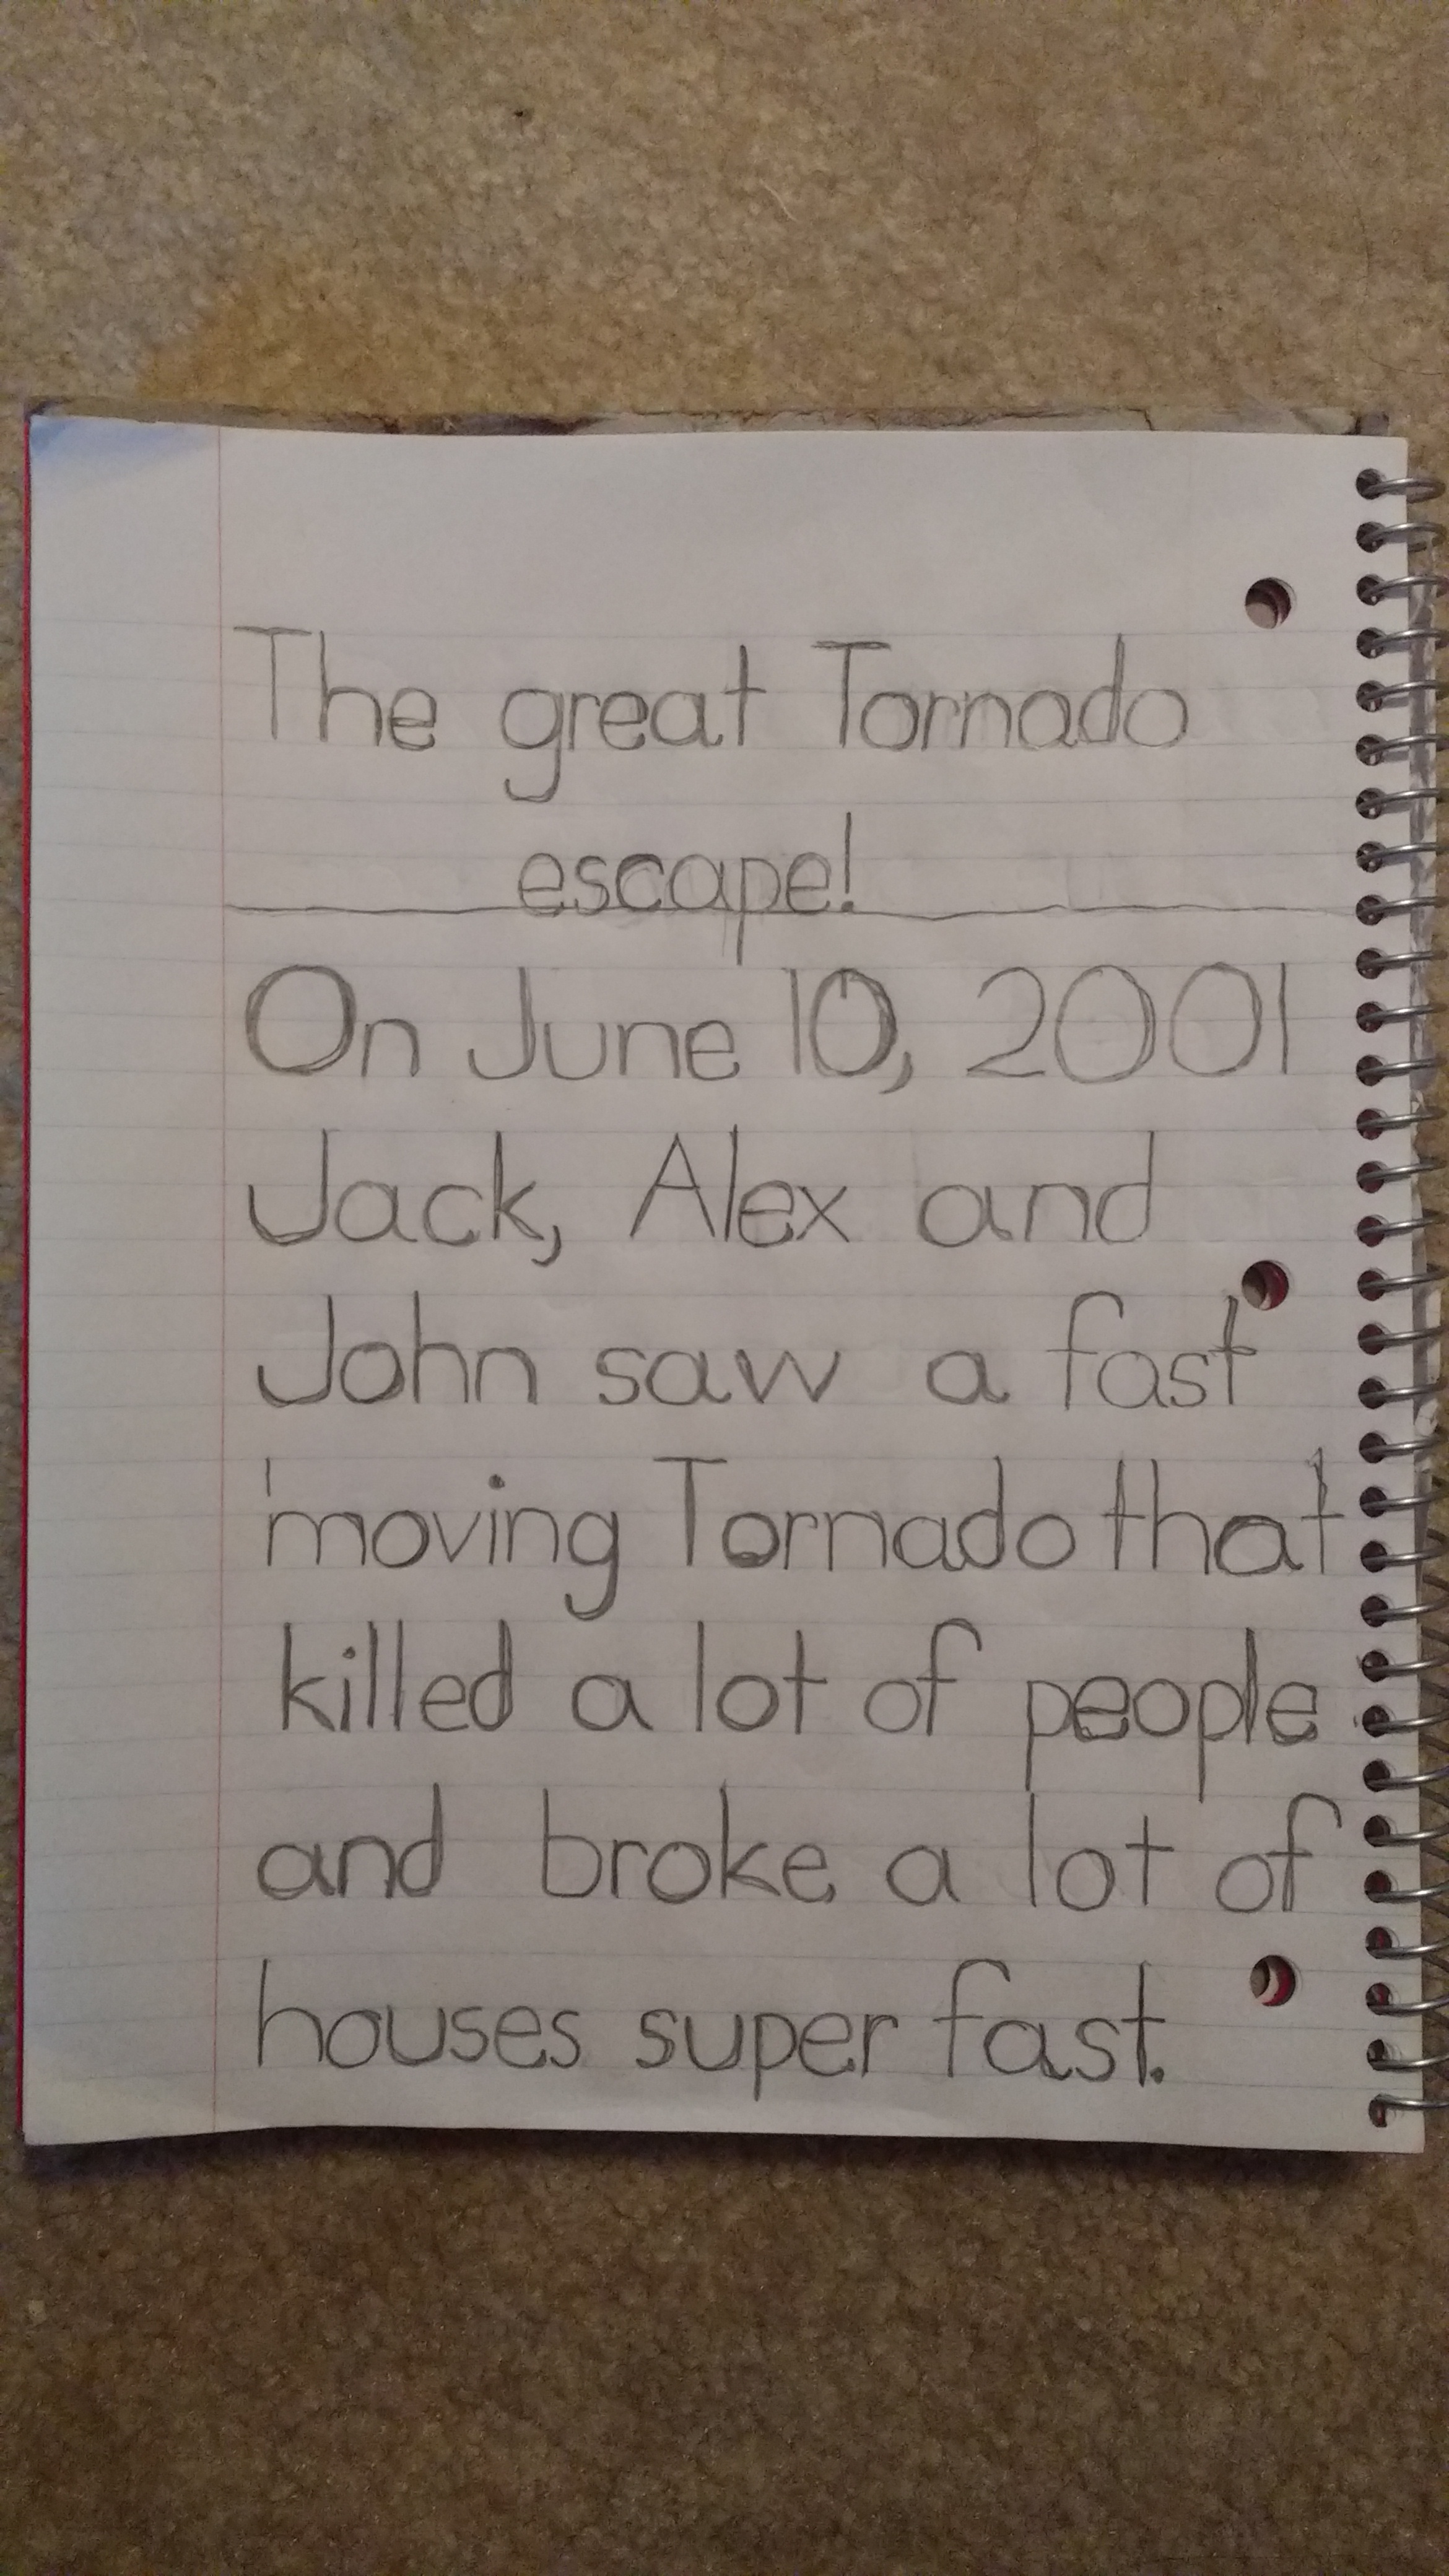 The great Tornado
escape!
On June 10, 2001
Jack, Alex and
John saw a fast
moving Tornado that
killed a lot of people
and broke a lot of
houses super fast.